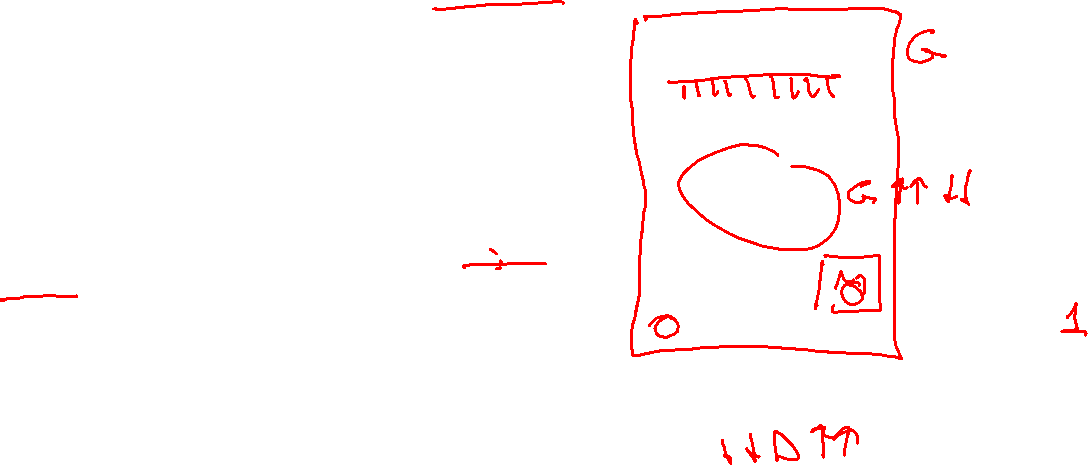 G
G ↑↑ ↓↓
1
↓↓ D ↑↑